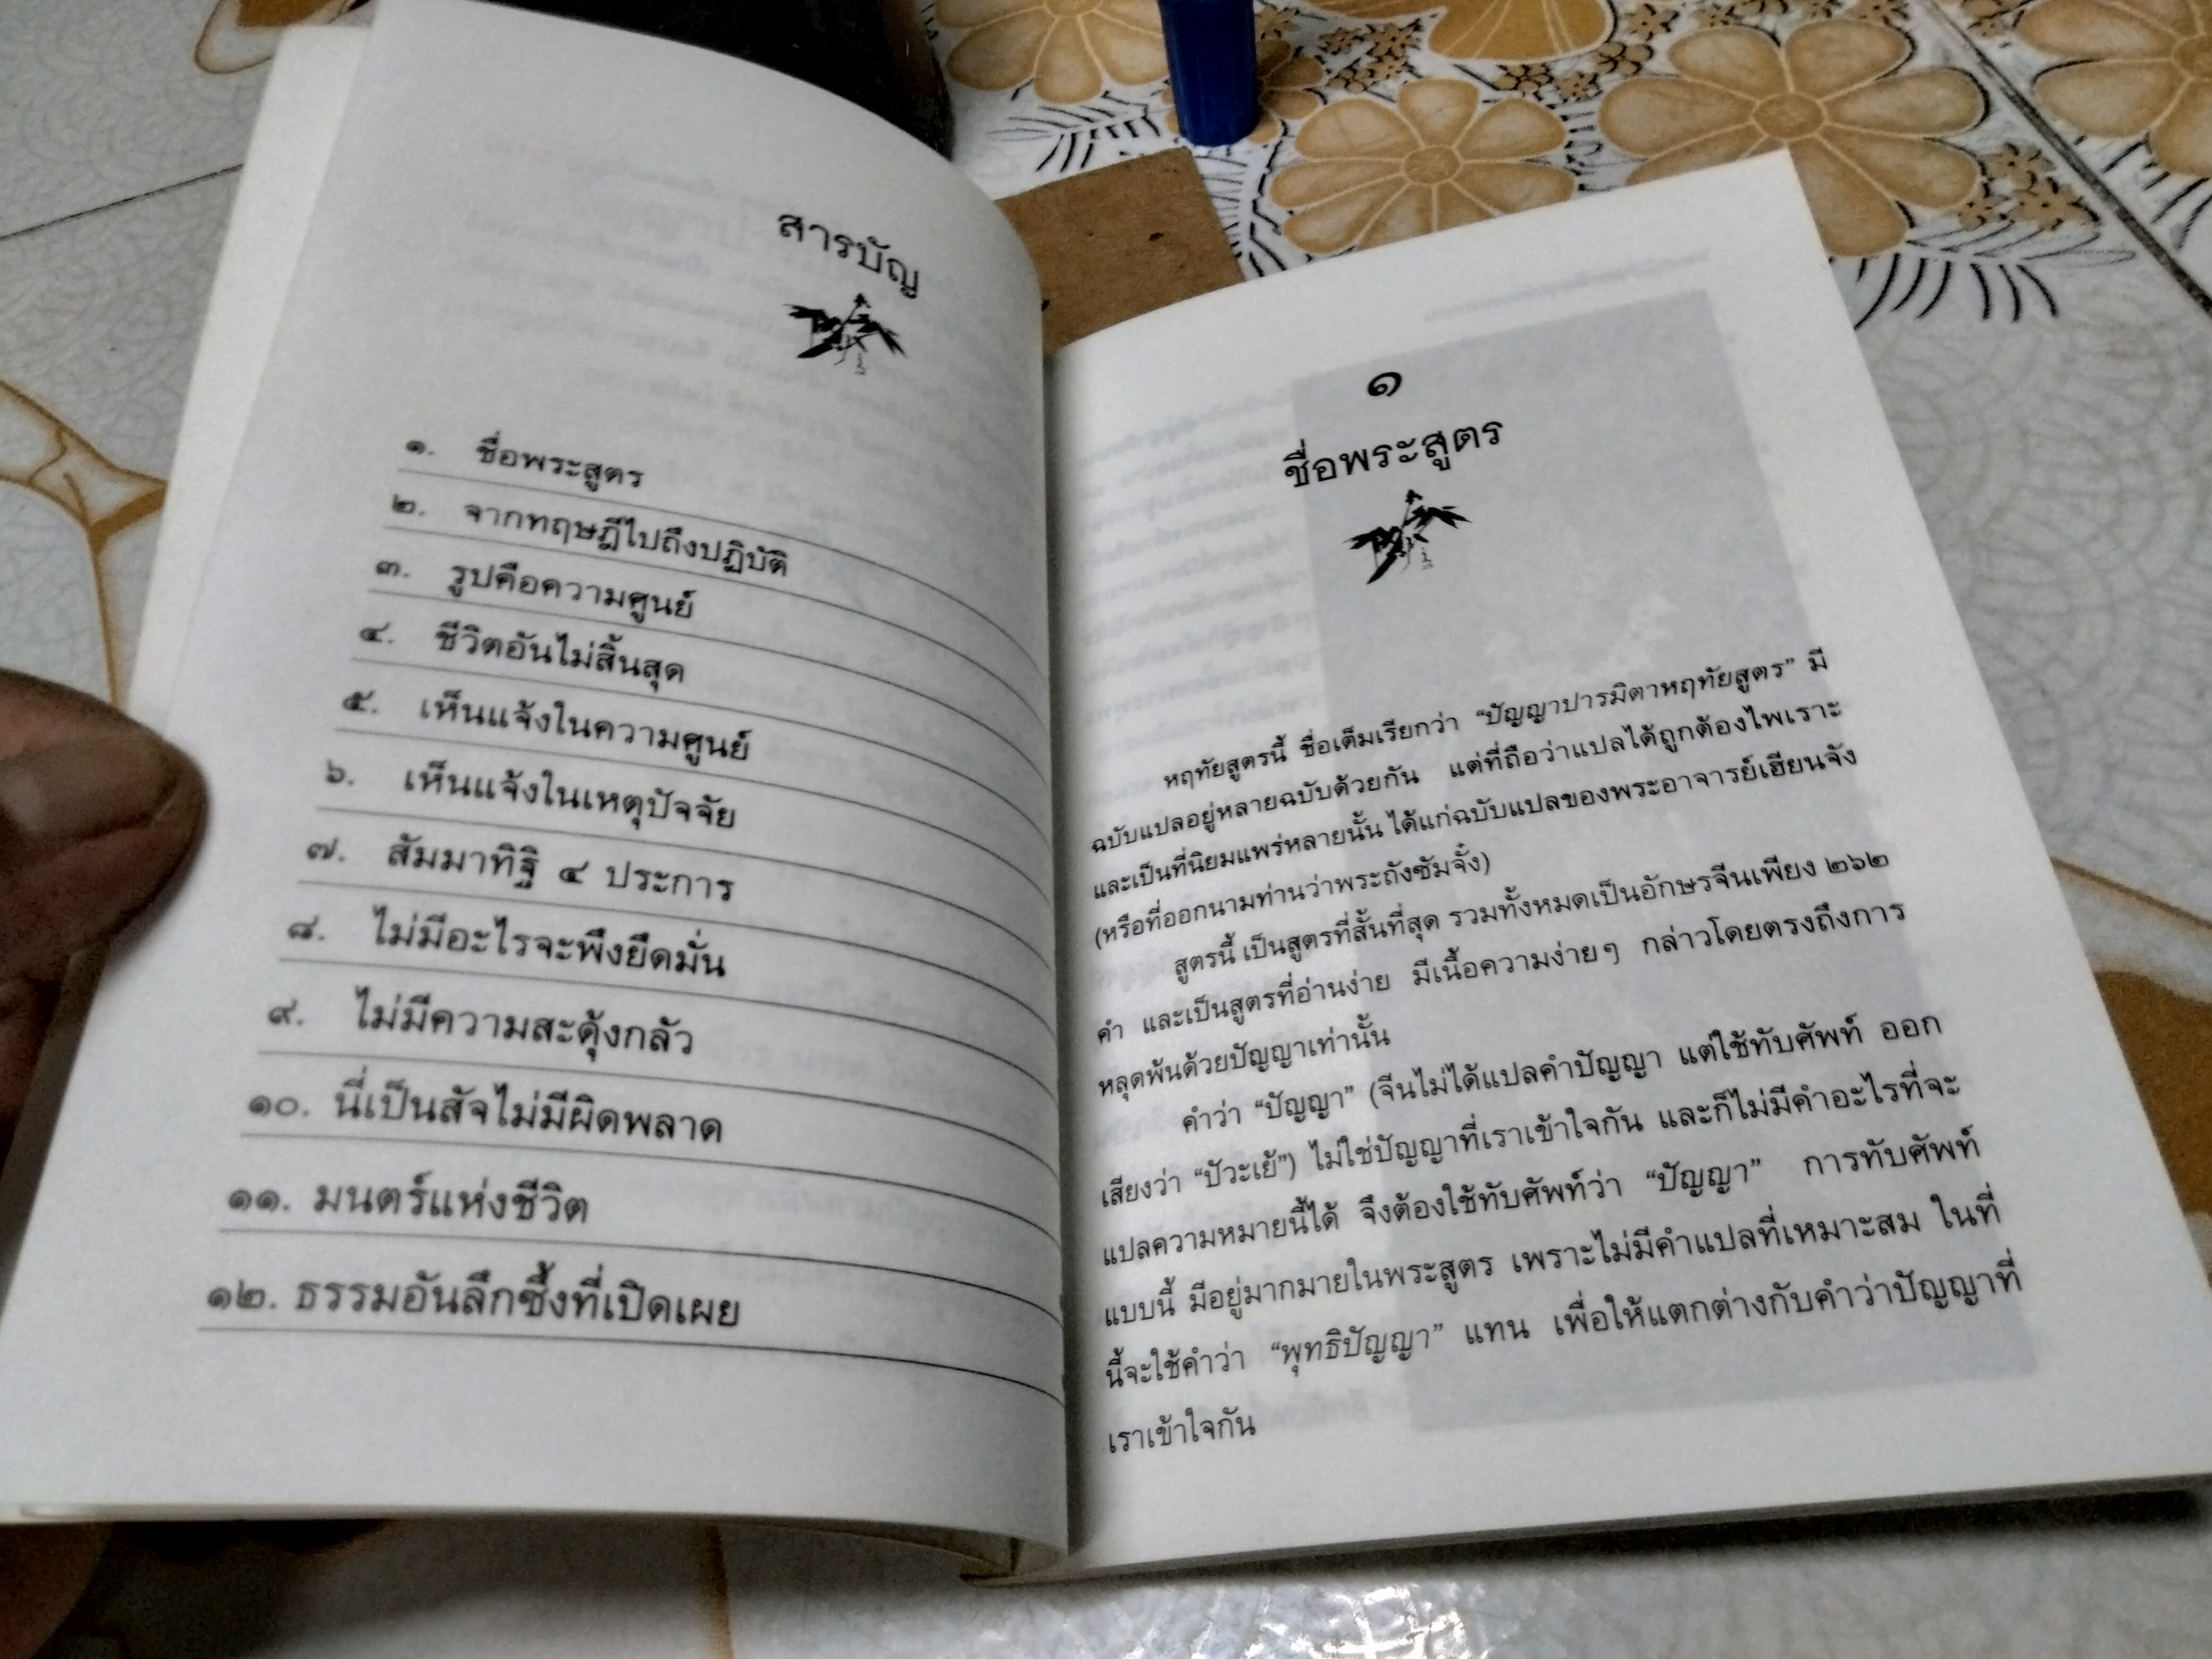 สารบัญ
๑. ชื่อพระสูตร
๒. จากทฤษฎีไปถึงปฏิบัติ
๓. รูปคือความศูนย์
๔. ชีวิตอันไม่สิ้นสุด
๕. เห็นแจ้งในความศูนย์
๖. เห็นแจ้งในเหตุปัจจัย
๗. สัมมาทิฐิ ๔ ประการ
๘. ไม่มีอะไรจะพึงยึดมั่น
๙. ไม่มีความสะดุ้งกลัว
๑๐. นี่เป็นสัจไม่มีผิดพลาด
๑๑. มนตร์แห่งชีวิต
๑๒. ธรรมอันลึกซึ้งที่เปิดเผย
๑
ชื่อพระสูตร
หฤทัยสูตรนี้ ชื่อเต็มเรียกว่า “ปัญญาปารมิตาหฤทัยสูตร” มี
ฉบับแปลอยู่หลายฉบับด้วยกัน แต่ที่ถือว่าแปลได้ถูกต้องไพเราะ
และเป็นที่นิยมแพร่หลายนั้น ได้แก่ฉบับแปลของพระอาจารย์เฮียนจัง
(หรือที่ออกนามท่านว่าพระถังซัมจั๋ง)
สูตรนี้ เป็นสูตรที่สั้นที่สุด รวมทั้งหมดเป็นอักษรจีนเพียง ๒๖๒
คำ และเป็นสูตรที่อ่านง่าย มีเนื้อความง่ายๆ กล่าวโดยตรงถึงการ
หลุดพ้นด้วยปัญญาเท่านั้น
คำว่า “ปัญญา” (จีนไม่ได้แปลคำปัญญา แต่ใช้ทับศัพท์ ออก
เสียงว่า “ปัวะเย้”) ไม่ใช่ปัญญาที่เราเข้าใจกัน และก็ไม่มีคำอะไรที่จะ
แปลความหมายนี้ได้ จึงต้องใช้ทับศัพท์ว่า “ปัญญา” การทับศัพท์
แบบนี้ มีอยู่มากมายในพระสูตร เพราะไม่มีคำแปลที่เหมาะสม ในที่
นี้จะใช้คำว่า “พุทธิปัญญา” แทน เพื่อให้แตกต่างกับคำว่าปัญญาที่
เราเข้าใจกัน